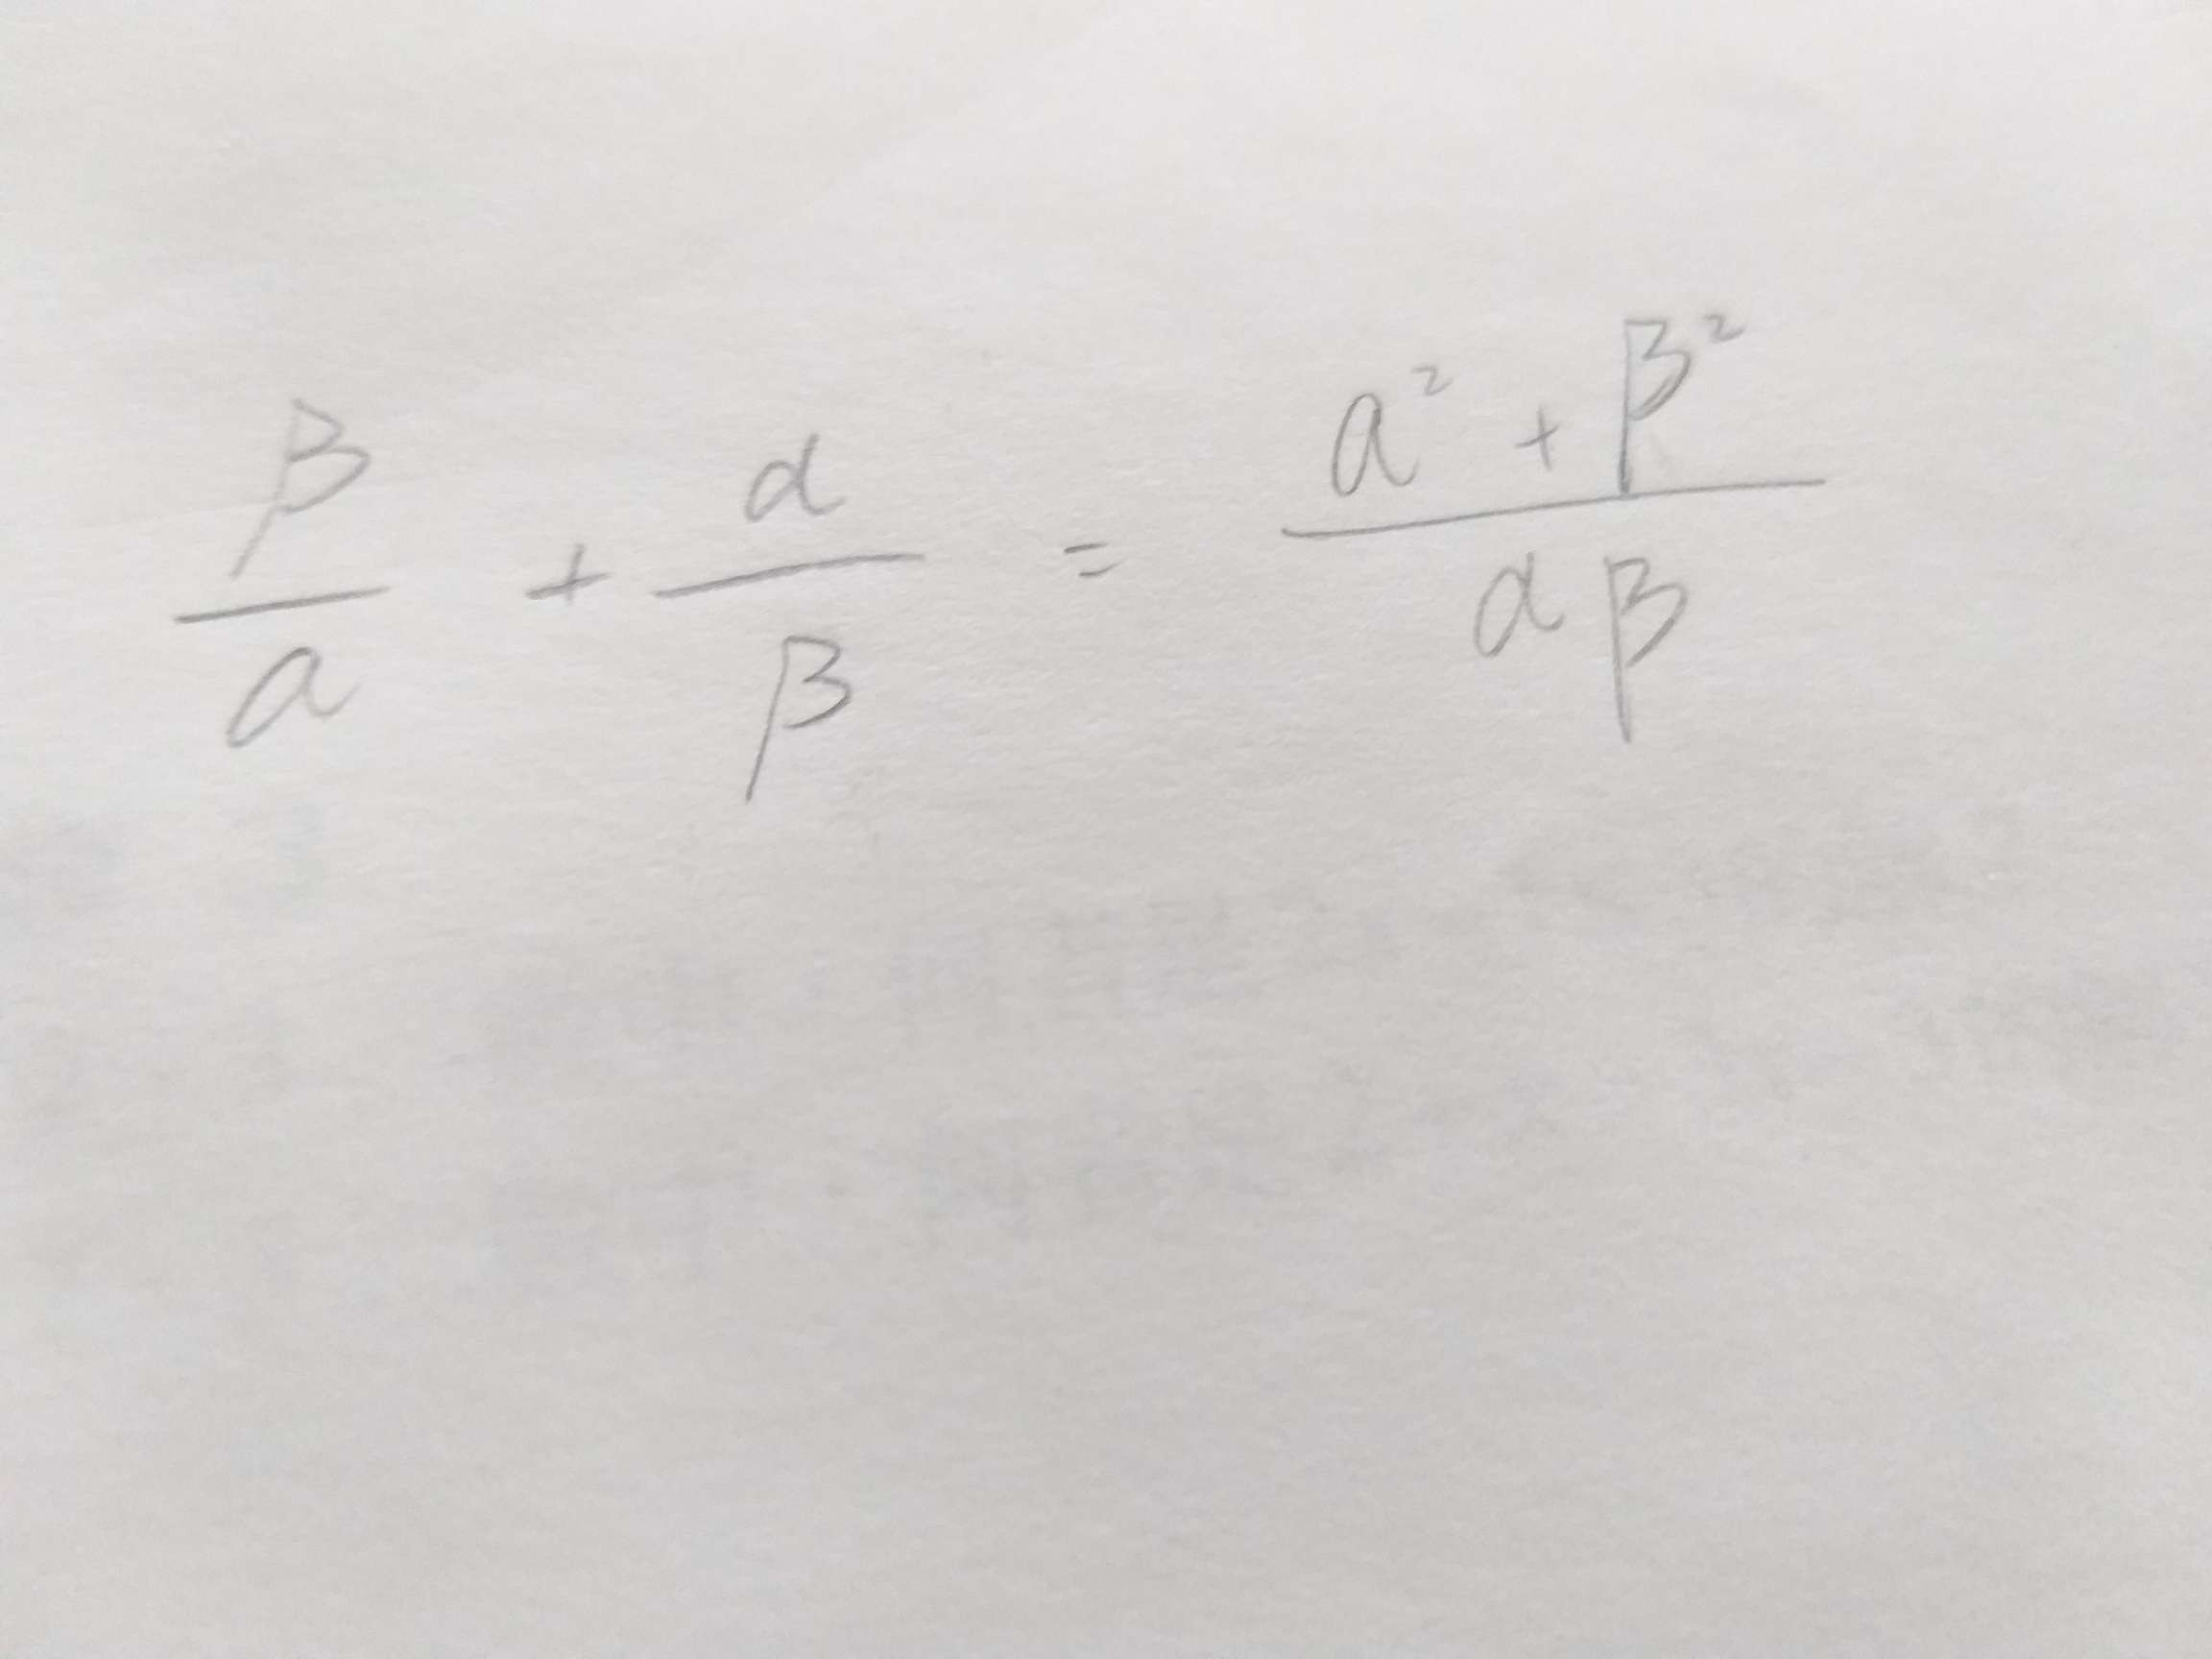 β/α + α/β = α² + β²/αβ